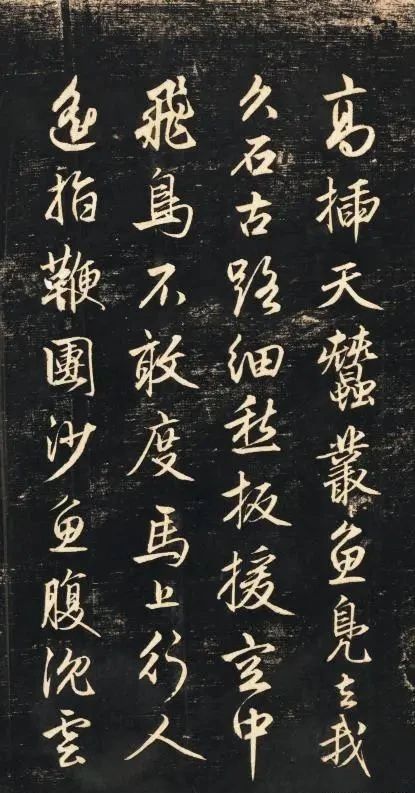 高插天蠶叢魚鳧去我
久石古路細愁扳援空中
飛鳥不敢度馬上行人
遥指鞭團沙魚腹沉雲